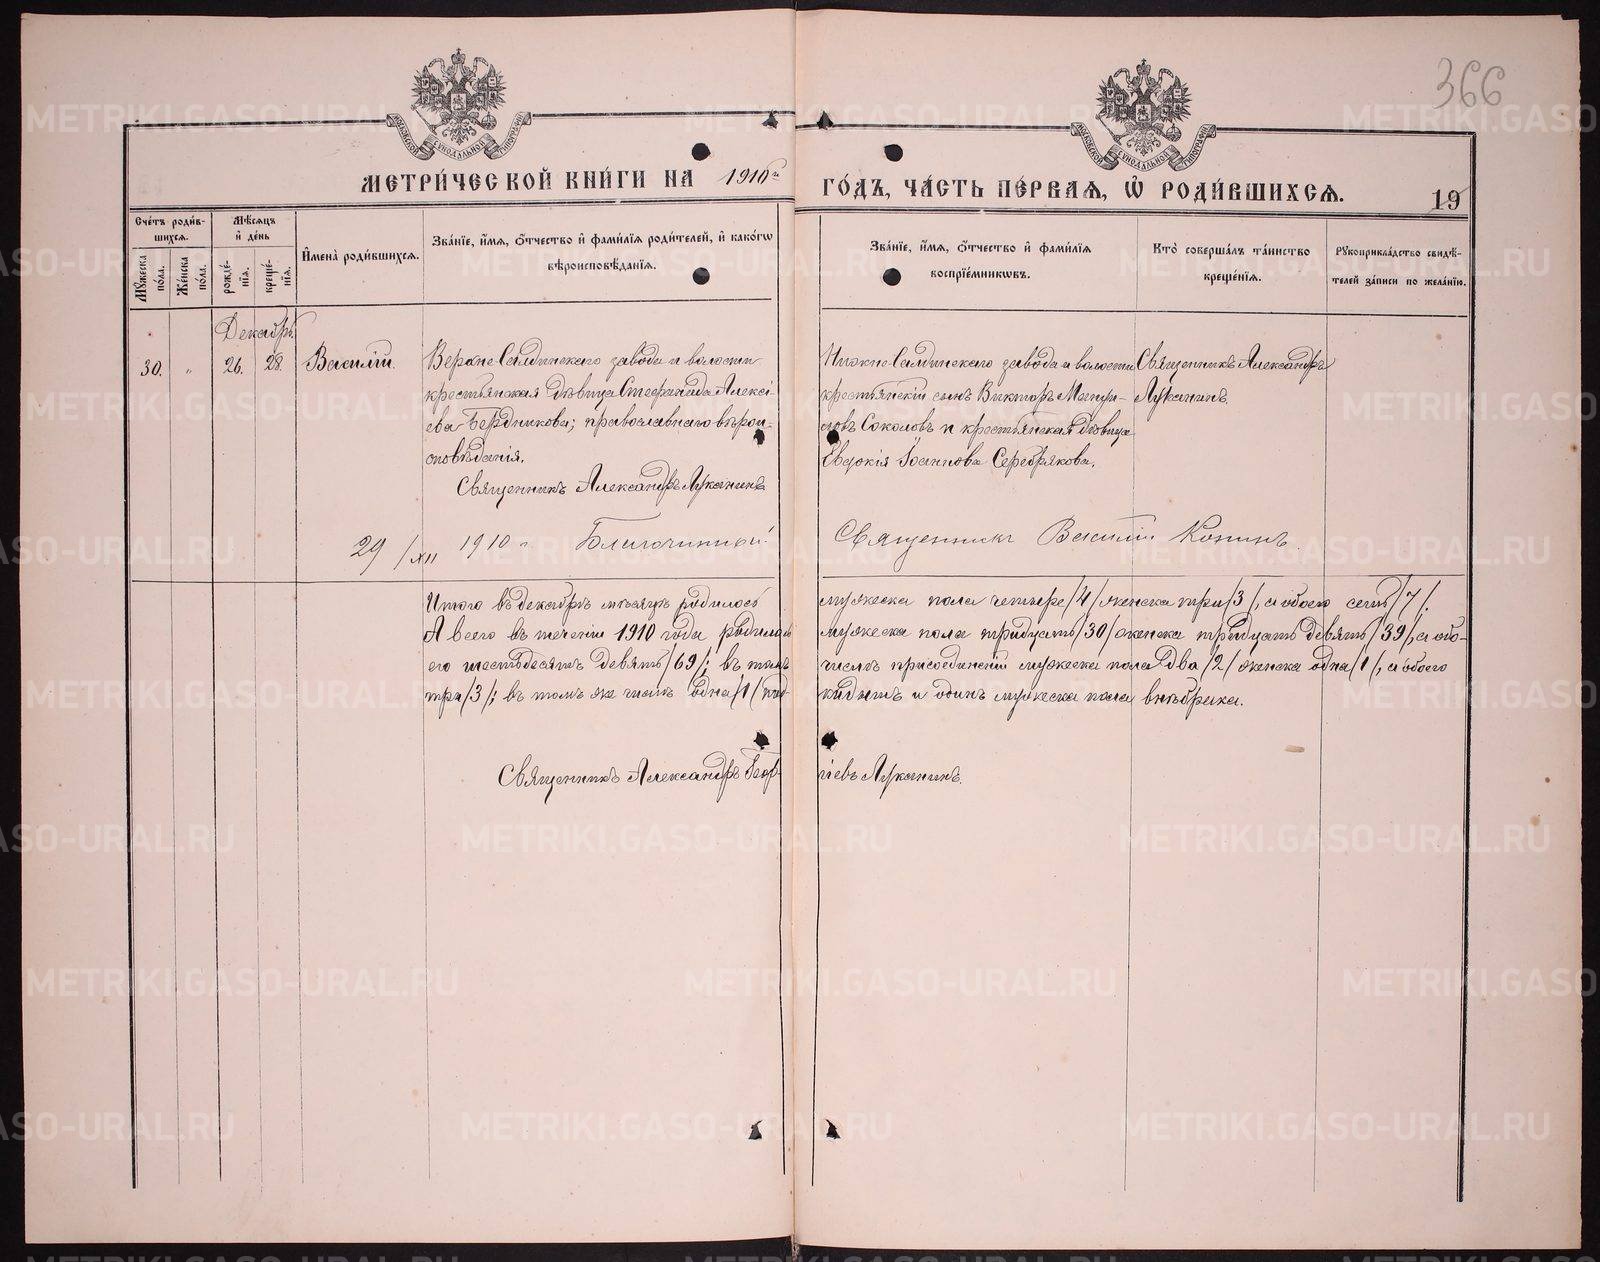 366
МОСКОВСКОЙ СѴНОДАЛЬНОЙ ТИПОГРАФІИ
МОСКОВСКОЙ СѴНОДАЛЬНОЙ ТИПОГРАФІИ
МЕТРИ́ЧЕСКОЙ КНИ́ГИ НА 1910й ГО́ДЪ, ЧА́СТЬ ПЕ́РВАѦ, Ѡ҆ РОДИ́ВШИХСѦ.
19
Сче́тъ роди́в-
шихсѧ.
Мꙋ́жеска по́ла.
Же́нска по́ла.
Мѣ́сѧцъ
и҆ де́нь
рожде́-
нїѧ.
креще́-
нїѧ.
И҆мена̀ роди́вшихсѧ.
Зва́нїе, и҆́мѧ, ѻ҆́тчество и҆ фами́лїѧ роди́телей, и҆ како́гѡ
вѣроисповѣ́данїѧ.
Зва́нїе, и҆́мѧ, ѻ҆́тчество и҆ фами́лїѧ
воспрїе́мникѡвъ.
Кто̀ соверша́лъ та́инство
креще́нїѧ.
Рꙋкоприкла́дство свидѣ́-
телей за́писи по жела́нїю.
Декабрь.
30. „ 26. 28. Василій.
Верхне-Салдинскаго завода и волости
крестьянская дѣвица Стефанида Алексі-
ева Бердникова; православнаго вѣрои-
сповѣданія.
Священникъ Александръ Луканинъ
Нижне-Салдинскаго завода и волости
крестьянскій сынъ Викторъ
ловъ Соколовъ и крестьянская дѣвица
Евдокія Іоаннова Серебрякова.
Священникъ Александръ
Луканинъ.
29/XII 1910 г. Благочинный Священникъ Василій
Итого въ декабрѣ мѣсяцѣ родилось мужеска пола четыре /4/ женска три /3/, а обоего семь /7/.
А всего въ теченіи 1910 года родилось мужеска пола тридцать /30/ женска тридцать девять /39/, а обо-
его шестьдесятъ девять /69/; въ томъ числѣ присоединеній мужеска пола два /2/ женска одна /1/, а обоего
три /3/; въ томъ же числѣ одна /1/ под- кидышъ и одинъ мужеска пола внѣ брака.
Священникъ Александръ Геор- гіевъ Луканинъ.
METRIKI.GASO-URAL.RU